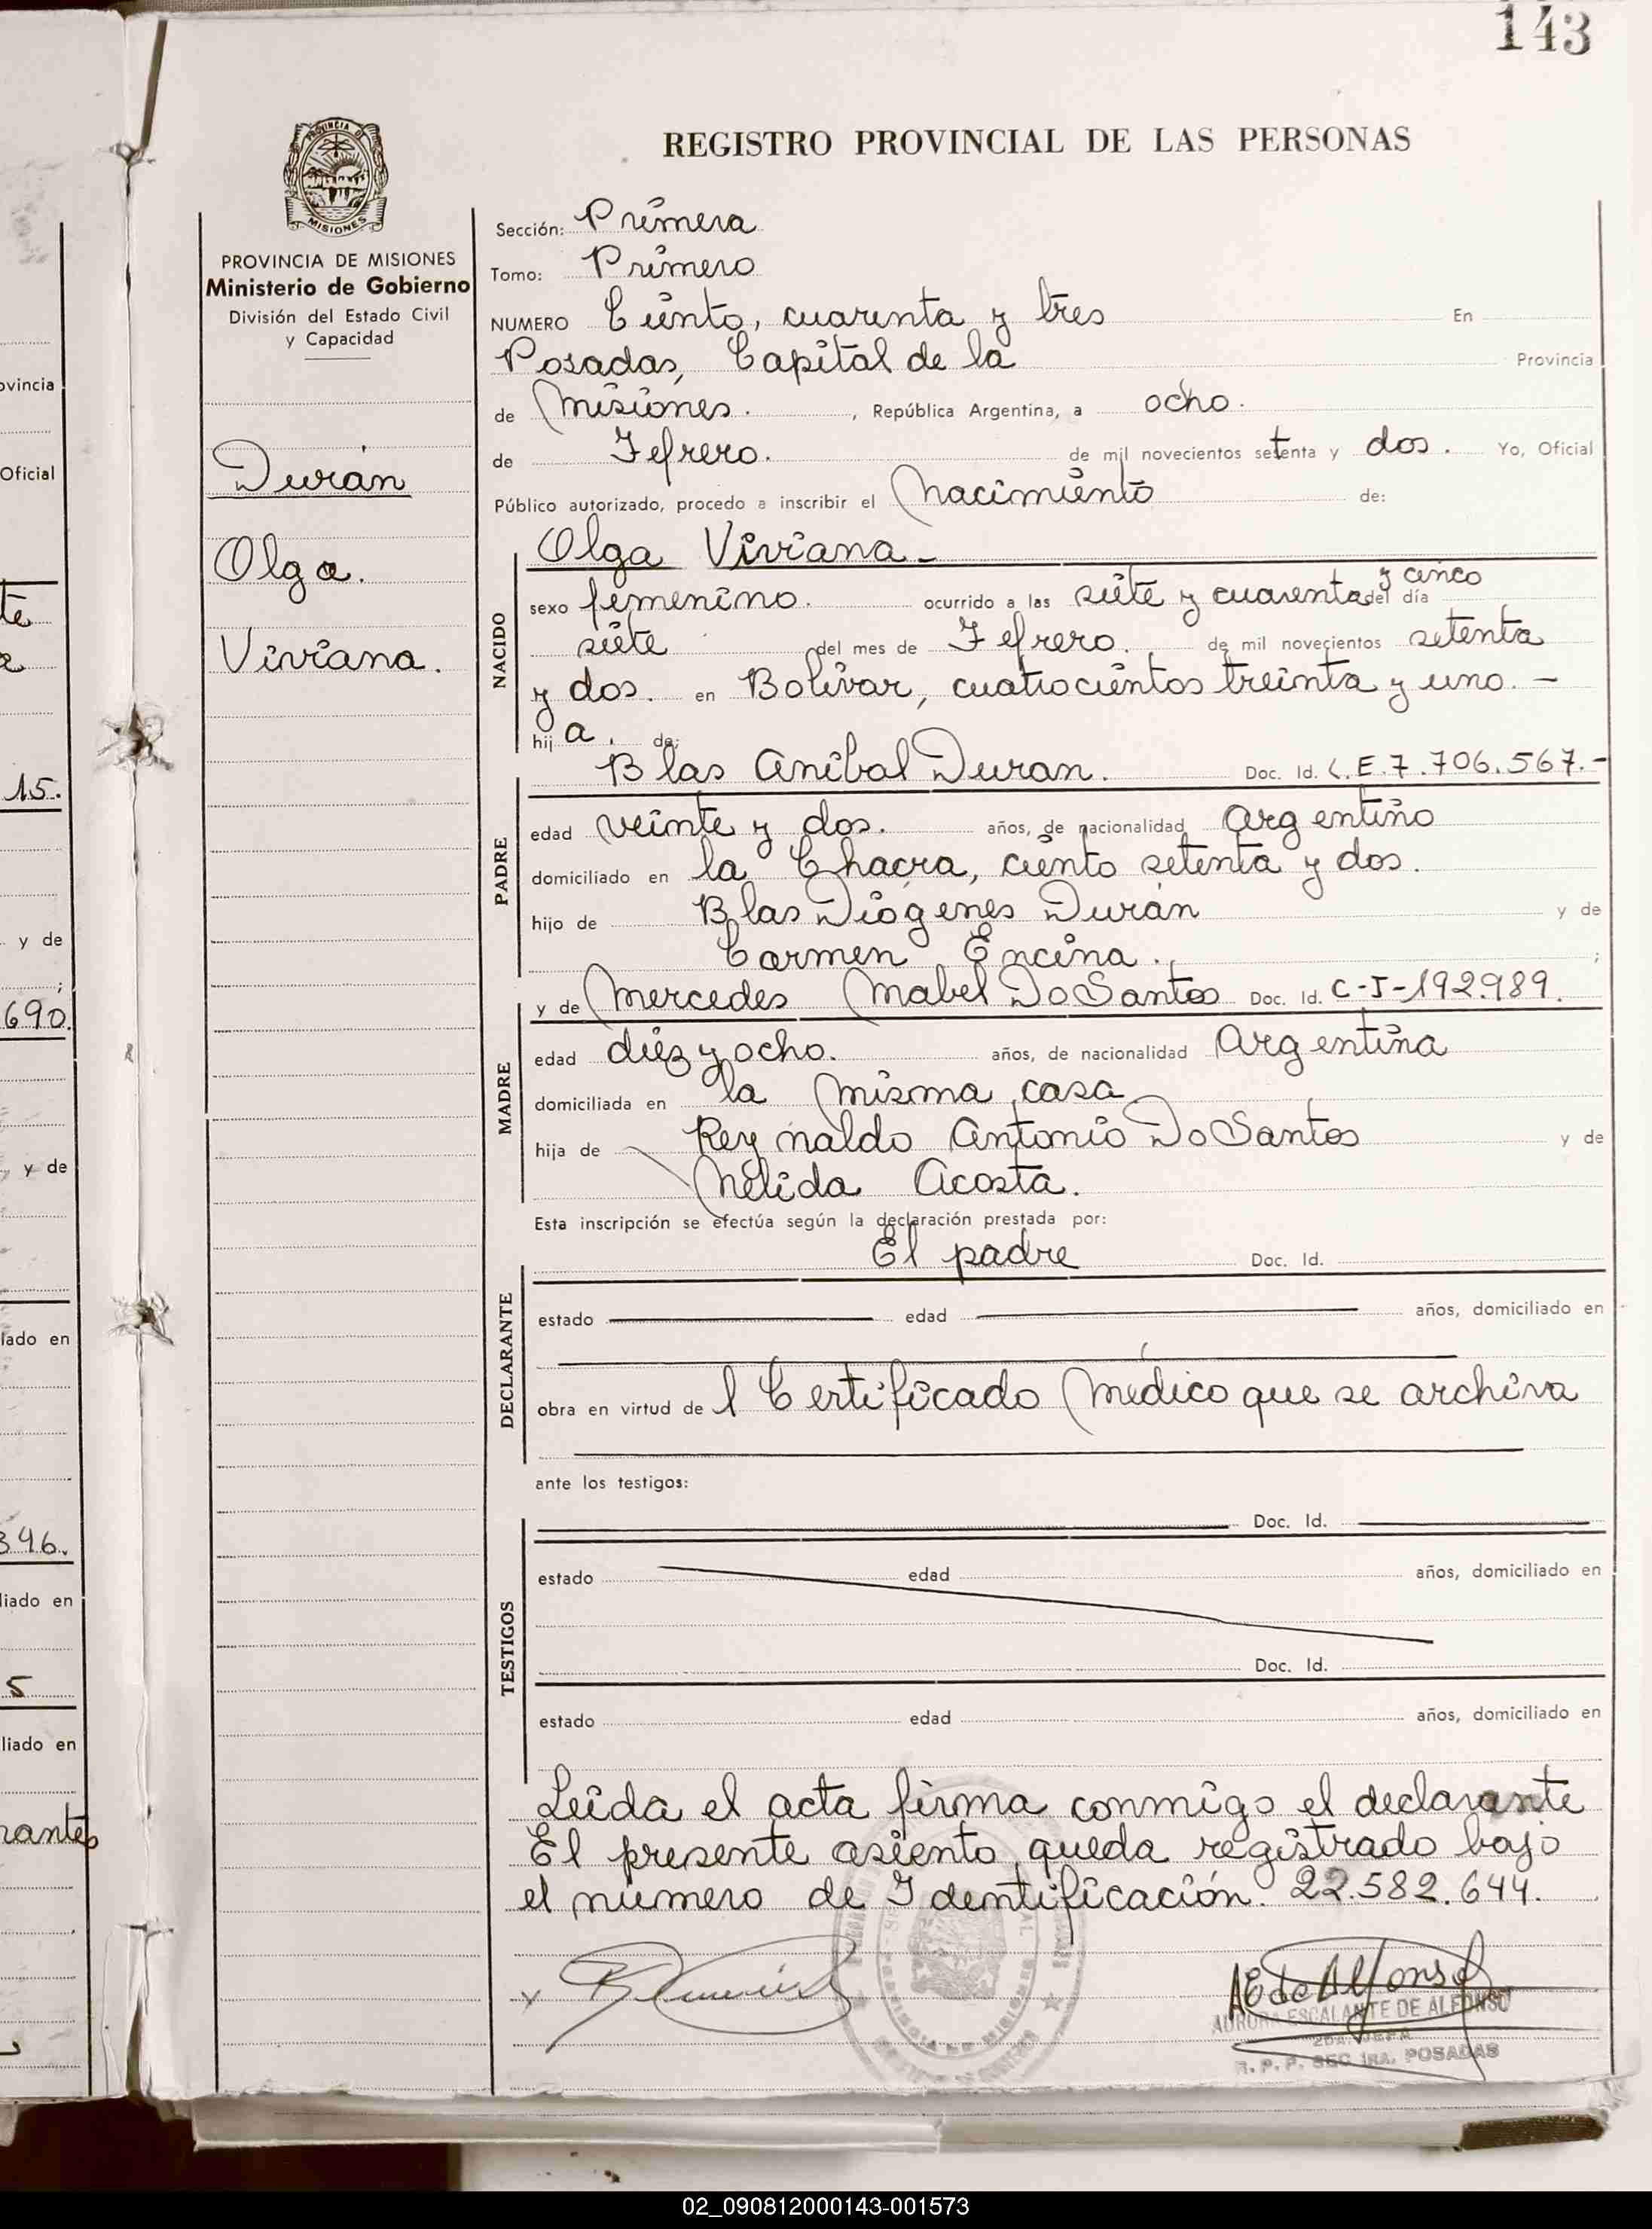 143
REGISTRO PROVINCIAL DE LAS PERSONAS
PROVINCIA DE MISIONES
Ministerio de Gobierno
División del Estado Civil
y Capacidad
Durán
Olga.
Viviana.
Sección: Primera
Tomo: Primero
NUMERO Ciento, cuarenta y tres En
Posadas, Capital de la Provincia
de Misiones. , República Argentina, a ocho.
de Fefrero. de mil novecientos setenta y dos. Yo, Oficial
Público autorizado, procedo a inscribir el Nacimiento de:
NACIDO
Olga Viviana -
sexo femenino. ocurrido a las siete y cuarenta y cinco del día
siete del mes de Fefrero. de mil novecientos setenta
y dos. en Bolívar, cuatrocientos treinta y uno. -
hija. de:
PADRE
Blas Anibal Duran. Doc. Id. L.E.7.706.567.-
edad veinte y dos. años, de nacionalidad Argentino
domiciliado en la Chacra, ciento setenta y dos.
hijo de Blas Diógenes Durán y de
Carmen Encina. ;
MADRE
y de Mercedes Mabel Do Santos Doc. Id. C-I-192.989.
edad diez y ocho. años, de nacionalidad Argentina
domiciliada en la misma casa
hija de Reynaldo Antonio Do Santos y de
Nélida Acosta.
Esta inscripción se efectúa según la declaración prestada por:
DECLARANTE
El padre Doc. Id.
estado edad años, domiciliado en
obra en virtud de l Certificado Médico que se archiva
ante los testigos:
TESTIGOS
Doc. Id.
estado edad años, domiciliado en
Doc. Id.
estado edad años, domiciliado en
Leída el acta firma conmigo el declarante
El presente asiento queda registrado bajo
el número de Identificación. 22.582.644.
AURORA ESCALANTE DE ALFONSO
2DA. JEFA
R. P. P. SEC 1RA. POSADAS
ovincia
Oficial
te
15.
y de
;
690.
y de
lado en
396.
liado en
5
liado en
rantes
02_090812000143-001573